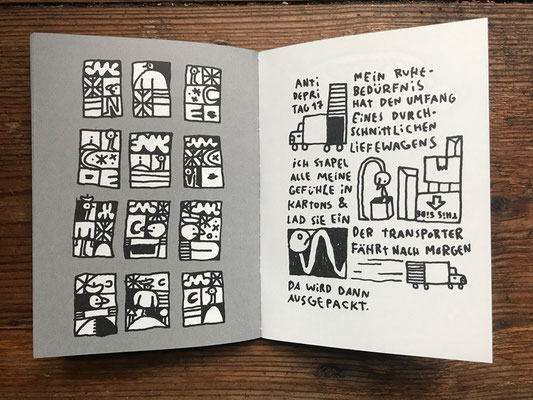 ANTI
DEPRI
TAG 17
MEIN RUHE-
BEDÜRFNIS
HAT DEN UMFANG
EINES DURCH-
SCHNITTLICHEN
LIEFEWAGENS
ICH STAPEL
ALLE MEINE
GEFÜHLE IN
KARTONS &
LAD SIE EIN
THIS SIDE
DER TRANSPORTER
FÄHRT NACH MORGEN
DA WIRD DANN
AUSGEPACKT.